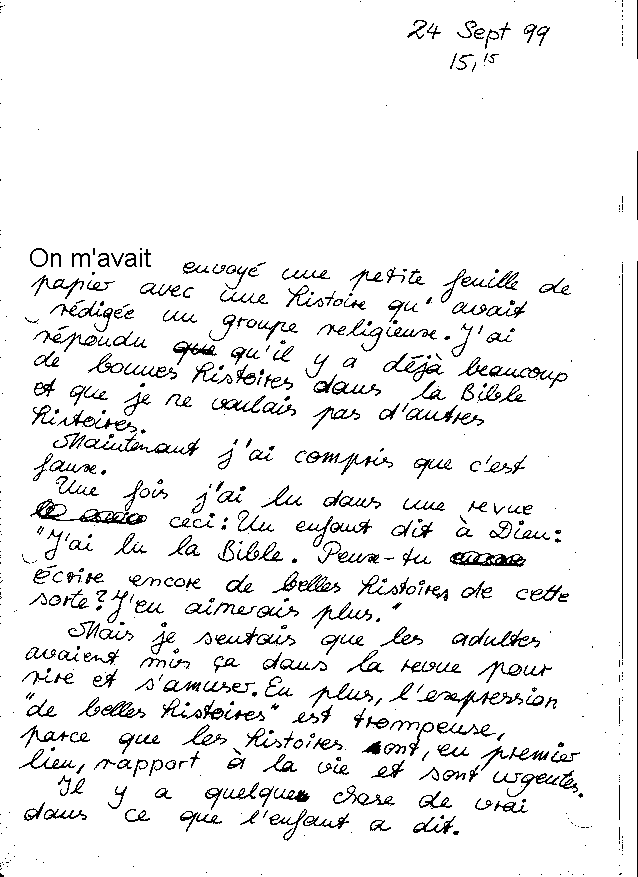 24 Sept 99
15,15
On m'avait envoyé une petite feuille de
papier avec une histoire qu'avait
rédigée un groupe religieuse. J'ai
répondu que qu'il y a déjà beaucoup
de bonnes histoires dans la Bible
et que je ne voulais pas d'autres
histoires.
Maintenant j'ai compris que c'est
faux.
Une fois j'ai lu dans une revue
ceci: Un enfant dit à Dieu:
"J'ai lu la Bible. Peux-tu
écrire encore de belles histoires de cette
sorte? J'en aimerais plus."
Mais je sentais que les adultes
avaient mis ça dans la revue pour
rire et s'amuser. En plus, l'expression
"de belles histoires" est trompeuse,
parce que les histoires ont, en premier
lieu, rapport à la vie et sont urgentes.
Il y a quelque chose de vrai
dans ce que l'enfant a dit.